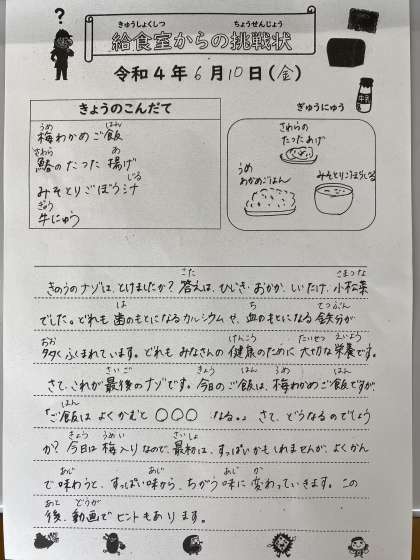 ?
きゅうしょくしつ ちょうせんじょう
給食室からの挑戦状
令和4年6月10日(金)
きょうのこんだて
うめ はん
梅わかめご飯
さわら あ
鰆のたつた揚げ
じる
みそとりごぼう汁
ぎゅう
牛にゅう
ぎゅうにゅう
牛乳
さわらの
たつたあげ
うめ
わかめごはん
みそとりごぼうじる
こた こまつな
きのうのナゾは、とけましたか?答えは、ひじき、おかか、しいたけ、小松菜
は ち てつぶん
でした。どれも歯のもとになるカルシウムせ、血のもとになる鉄分が
おお けんこう たいせつ えいよう
多くふくまれています。どれもみなさんの健康のために大切な栄養です。
さいご きょう はん うめ はん
さて、これが最後のナゾです。今日のご飯は、梅わかめご飯ですが、
はん
「ご飯はよくかむと〇〇〇なる。」さて、どうなるのでしょう
きょう うめい さいしょ
か?今日は梅入りなので、最初は、すっぱいかもしれませんが、よくかん
あじ あじ あじ か
で味わうと、すっぱい味から、ちがう味に変わっていきます。この
あと どうが
後、動画でヒントもあります。